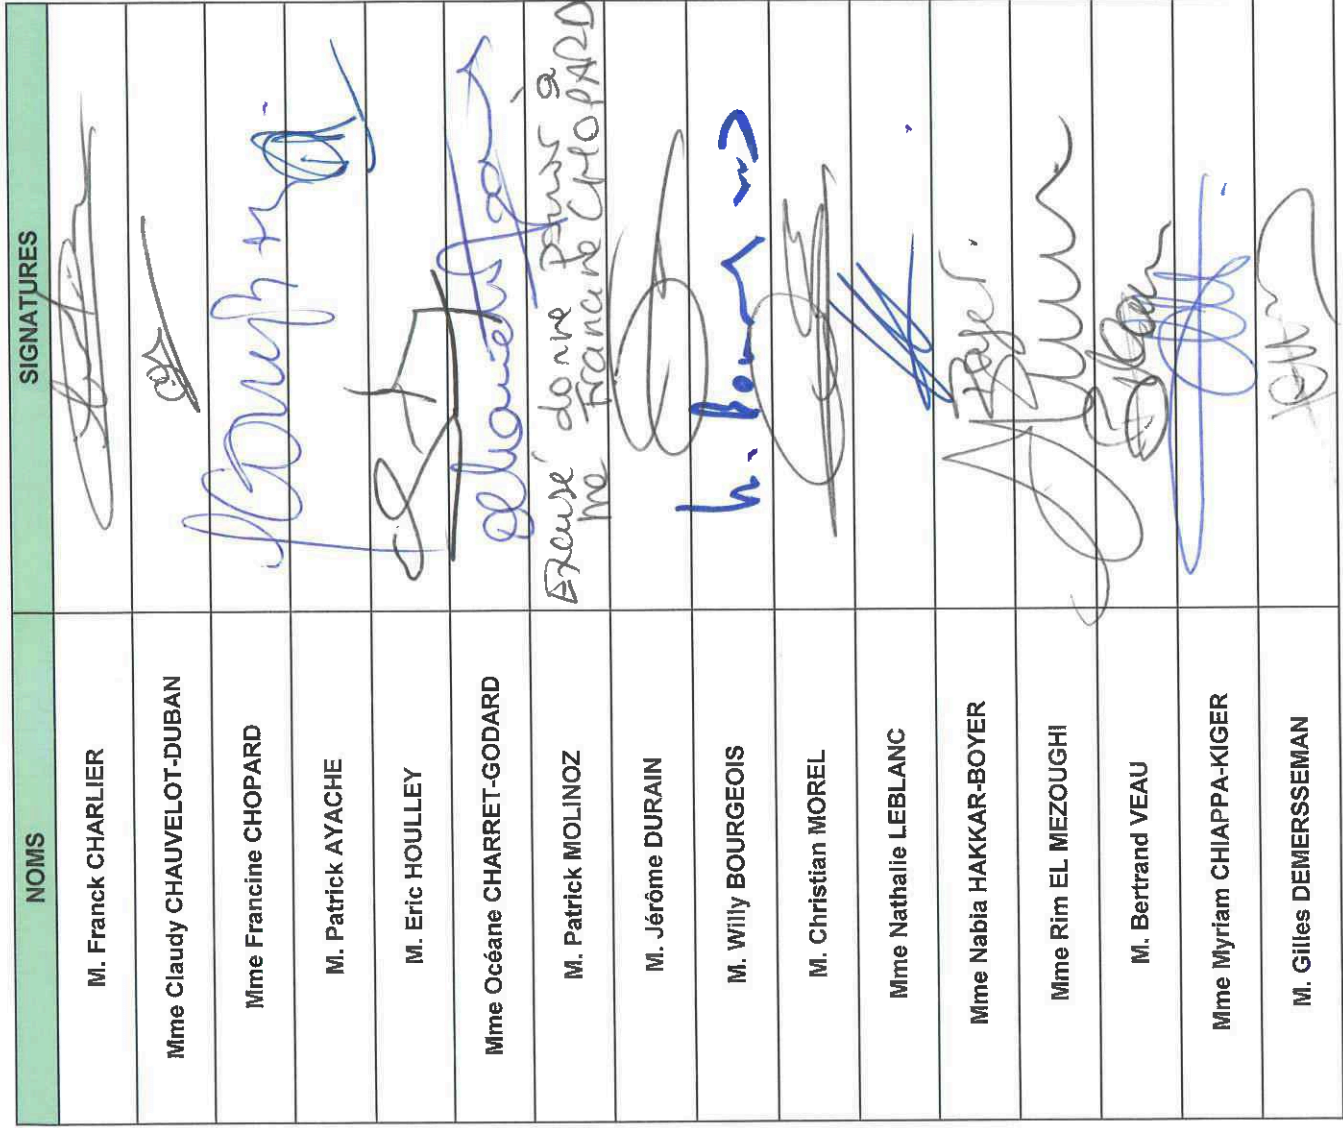 NOMS SIGNATURES
M. Franck CHARLIER
Mme Claudy CHAUVELOT-DUBAN
Mme Francine CHOPARD
M. Patrick AYACHE
M. Eric HOULLEY
Mme Océane CHARRET-GODARD
M. Patrick MOLINOZ Excusé donne Pouvoir à
me Francine CHOPARD
M. Jérôme DURAIN
M. Willy BOURGEOIS
M. Christian MOREL
Mme Nathalie LEBLANC
Mme Nabia HAKKAR-BOYER
Mme Rim EL MEZOUGHI
M. Bertrand VEAU
Mme Myriam CHIAPPA-KIGER
M. Gilles DEMERSSEMAN